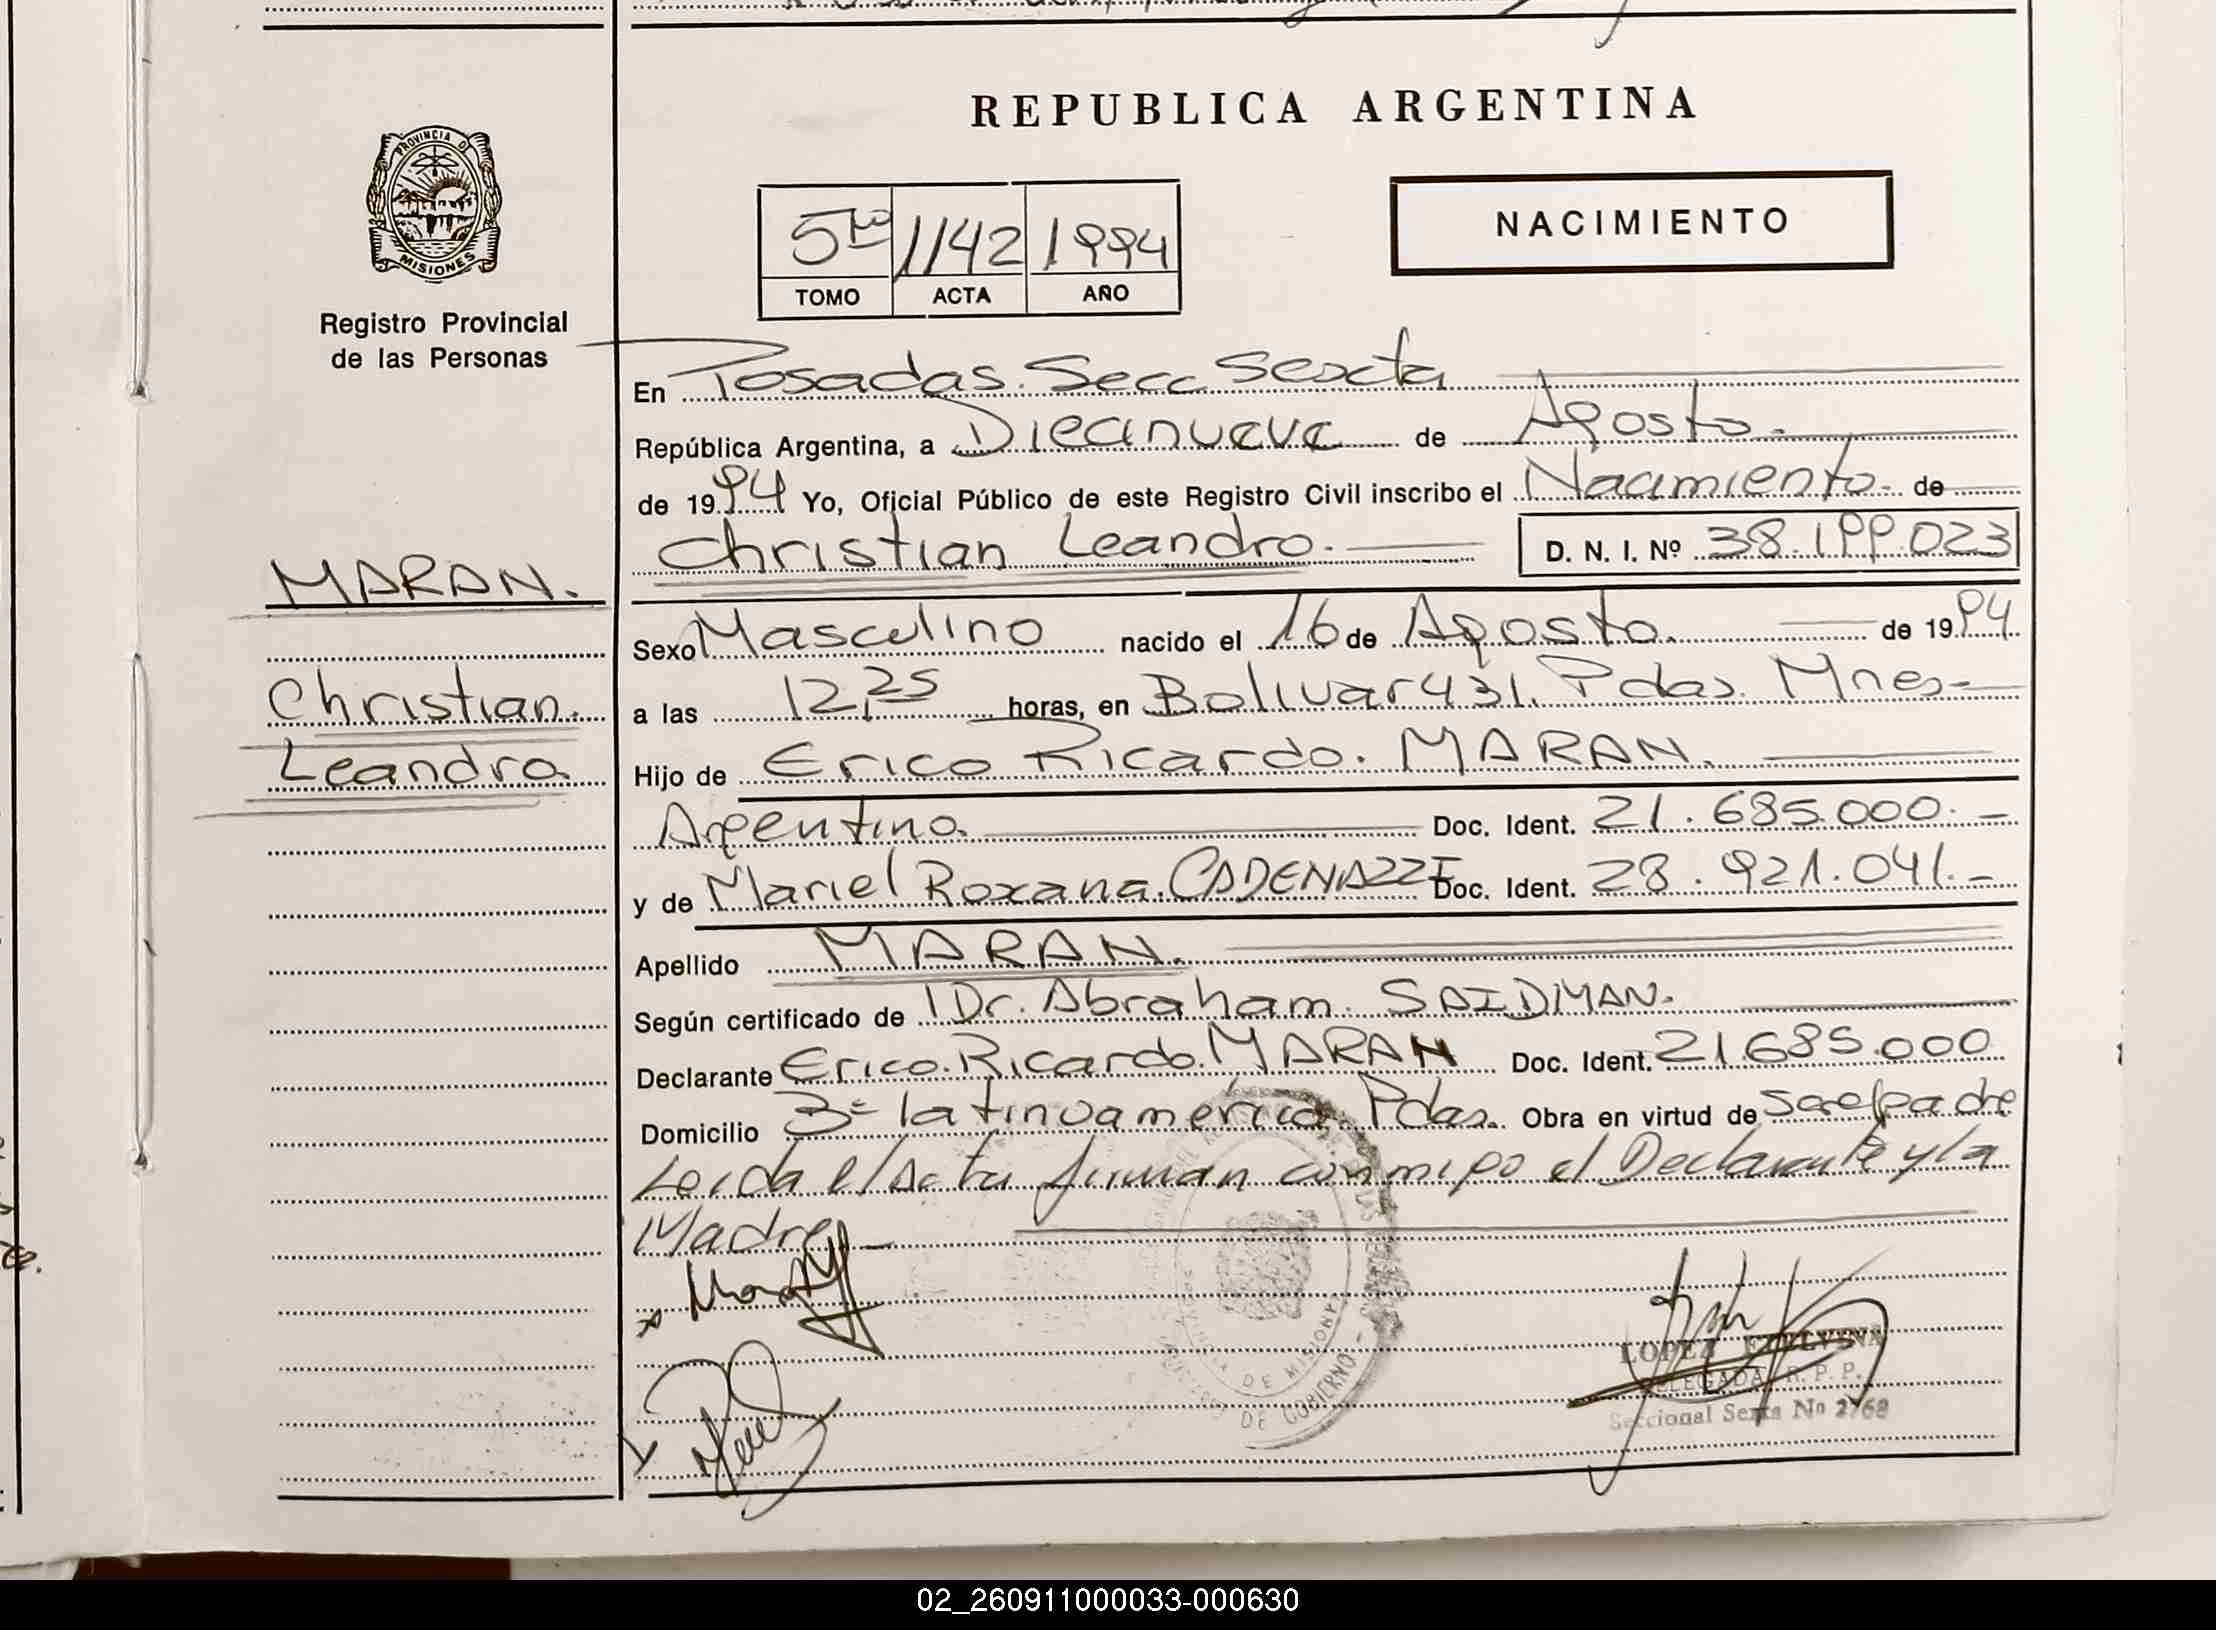 REPUBLICA ARGENTINA
PROVINCIA DE
MISIONES
Registro Provincial
de las Personas
NACIMIENTO
5to 1142 1994
TOMO ACTA AÑO
En Posadas. Secc. Sexta
República Argentina, a Diecinueve de Agosto.
de 1994 Yo, Oficial Público de este Registro Civil inscribo el Nacimiento. de
Christian Leandro. D. N. I. Nº 38.199.023
MARAN.
Christian.
Leandro
Sexo Masculino nacido el 16 de Agosto. de 1994
a las 12,25 horas, en Bolivar 431. Pdas. Mnes-
Hijo de Erico Ricardo. MARAN.
Argentino. Doc. Ident. 21.685.000.-
y de Mariel Roxana. CADENAZZI Doc. Ident. 28.921.041.-
Apellido MARAN.
Según certificado de Dr. Abraham. SAIDMAN.
Declarante Erico. Ricardo. MARAN Doc. Ident. 21.685.000
Domicilio latinoamérica. Pdas. Obra en virtud de padre
Leida el Acta firman conmigo el Declarante y la
Madre-
DE MISIONES
DE GOBIERNO-
LOPEZ
DELEGADA R. P. P.
Seccional Sexta Nº 2768
02_260911000033-000630